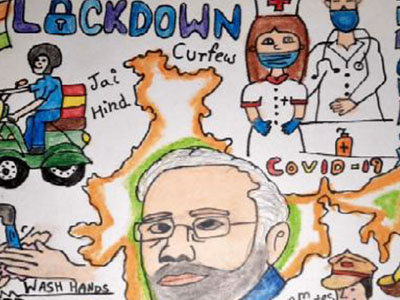 LOCKDOWN
Curfew
Jai
Hind
COVID-19
WASH HANDS